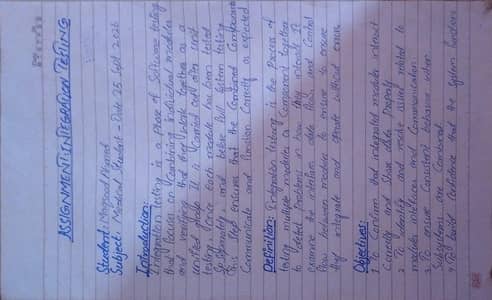 ASSIGNMENT: INTEGRATION TESTING
Student:
Subject: Student - Date 25 Sept 2026
Introduction:
Integration testing is a phase of Software testing
that focuses on Combining individual modules
and verifying that they work together as a
unified group. It is Carried out after unit
testing, once each module has been tested
Separately, and before full System testing
This step ensures that the Combined Components
Communicate and Function Correctly as expected
Definition: Integration testing is the Process of
testing multiple modules or Component together
to detect Problems in how they interact. It
examine the interface, data flow, and Control
flow between modules to ensure to ensure
they integrate and operate without errors.
Objectives:
1. To Confirm that integrated modules interact
Correctly and Share data Properly
2. To identify and resolve issues related to
module interfaces and Communication.
3. To ensure Consistent behavior when
Subsystems are Combined.
4. To build Confidence that the System functions